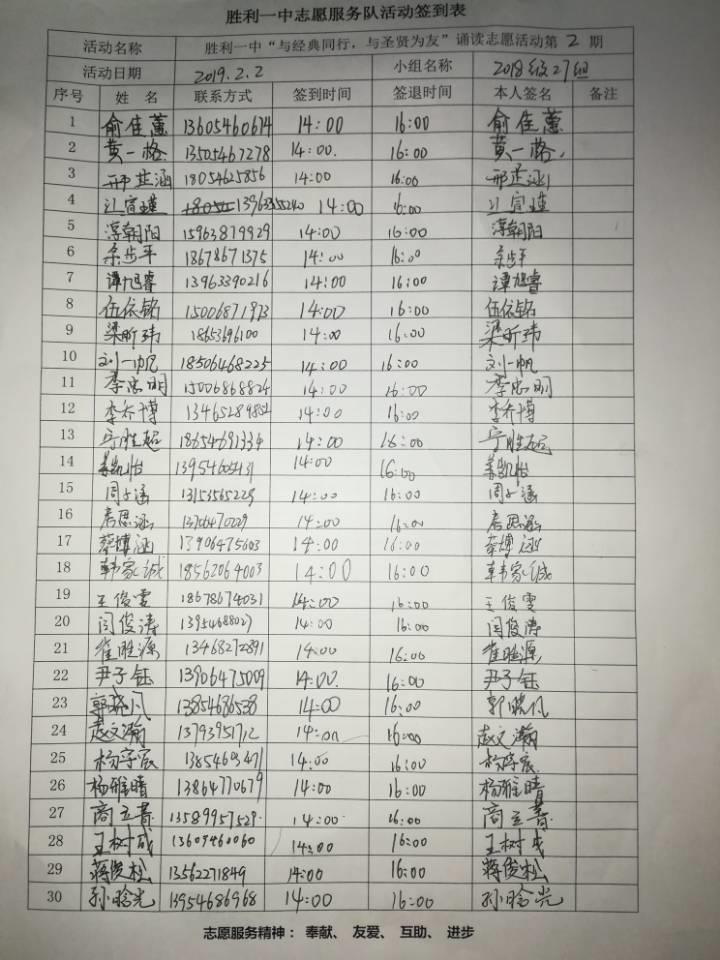 胜利一中志愿服务队活动签到表
活动名称 胜利一中“与经典同行，与圣贤为友”诵读志愿活动第 2 期
活动日期 2019.2.2 小组名称 2018级27组
序号 姓 名 联系方式 签到时间 签退时间 本人签名 备注
1 俞佳蕙 13605460614 14:00 16:00 俞佳蕙
2 黄一格 13505467278 14:00. 16:00 黄一格
3 邢芷涵 18054625856 14:00 16:00 邢芷涵
4 14:00 16:00
5 淳朝阳 15963879929 14:00 16:00 淳朝阳
6 余步平 18678671375 14:00 16:00 余步平
7 谭旭睿 13963390216 14:00 16:00 谭旭睿
8 伍依铭 15006871973 14:00 16:00 伍依铭
9 梁昕玮 18653696100 14:00 16:00 梁昕玮
10 刘一帆 18506468225 14:00 16:00 刘一帆
11 李忠明 15006868824 14:00 16:00 李忠明
12 李乔博 14:00 16:00 李乔博
13 宁胜超 18654691334 14:00 16:00 宁胜超
14 姜凯怡 14:00 16:00 姜凯怡
15 周子涵 13153565229 14:00 16:00 周子涵
16 思涵 14:00 16:00 思涵
17 蔡博涵 13906475603 14:00 16:00 蔡博涵
18 韩家诚 18562064003 14:00 16:00 韩家诚
19 王俊雯 18678674031 14:00 16:00 王俊雯
20 闫俊涛 13954688027 14:00 16:00 闫俊涛
21 崔胜源 13468272891 14:00 16:00 崔胜源
22 尹子钰 13906475009 14:00. 16:00 尹子钰
23 郭晓凡 13854686538 14:00 16:00 郭晓凡
24 赵文瀚 13793951712 14:00 16:00 赵文瀚
25 杨宇宸 14:00 16:00 杨宇宸
26 杨雅晴 13864770679 14:00 16:00 杨雅晴
27 商立菁 13589957529 14:00 16:00 商立菁
28 王树成 13609460060 14:00 16:00 王树成
29 蒋俊松 13562271849 14:00 16:00 蒋俊松
30 孙晗光 13954686968 14:00 16:00 孙晗光
志愿服务精神： 奉献、 友爱、 互助、 进步